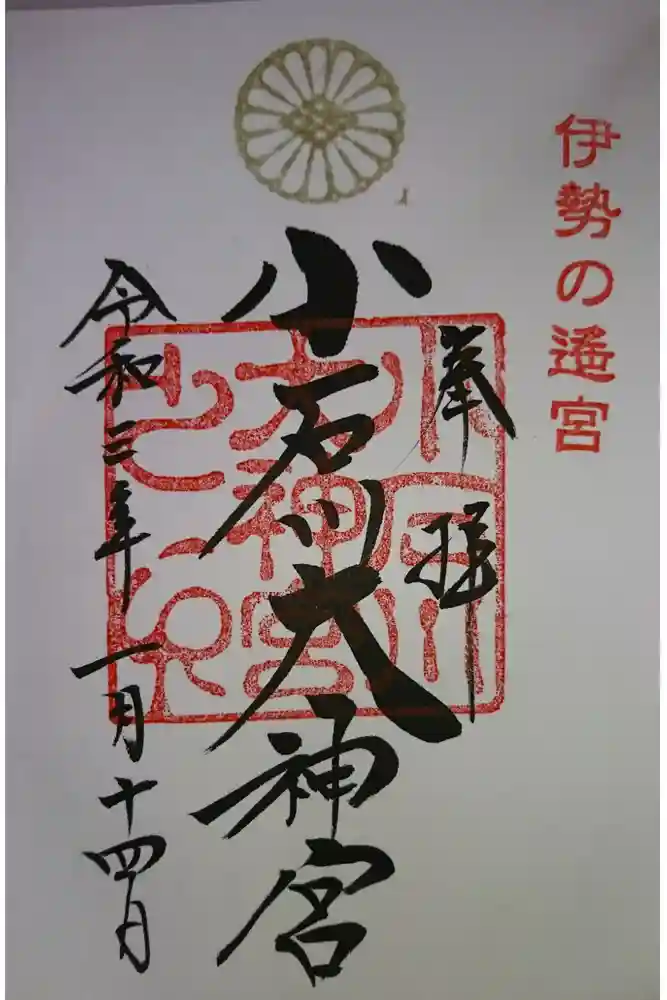 伊勢の遙宮
奉拝
小石川大神宮
令和三年一月十四日